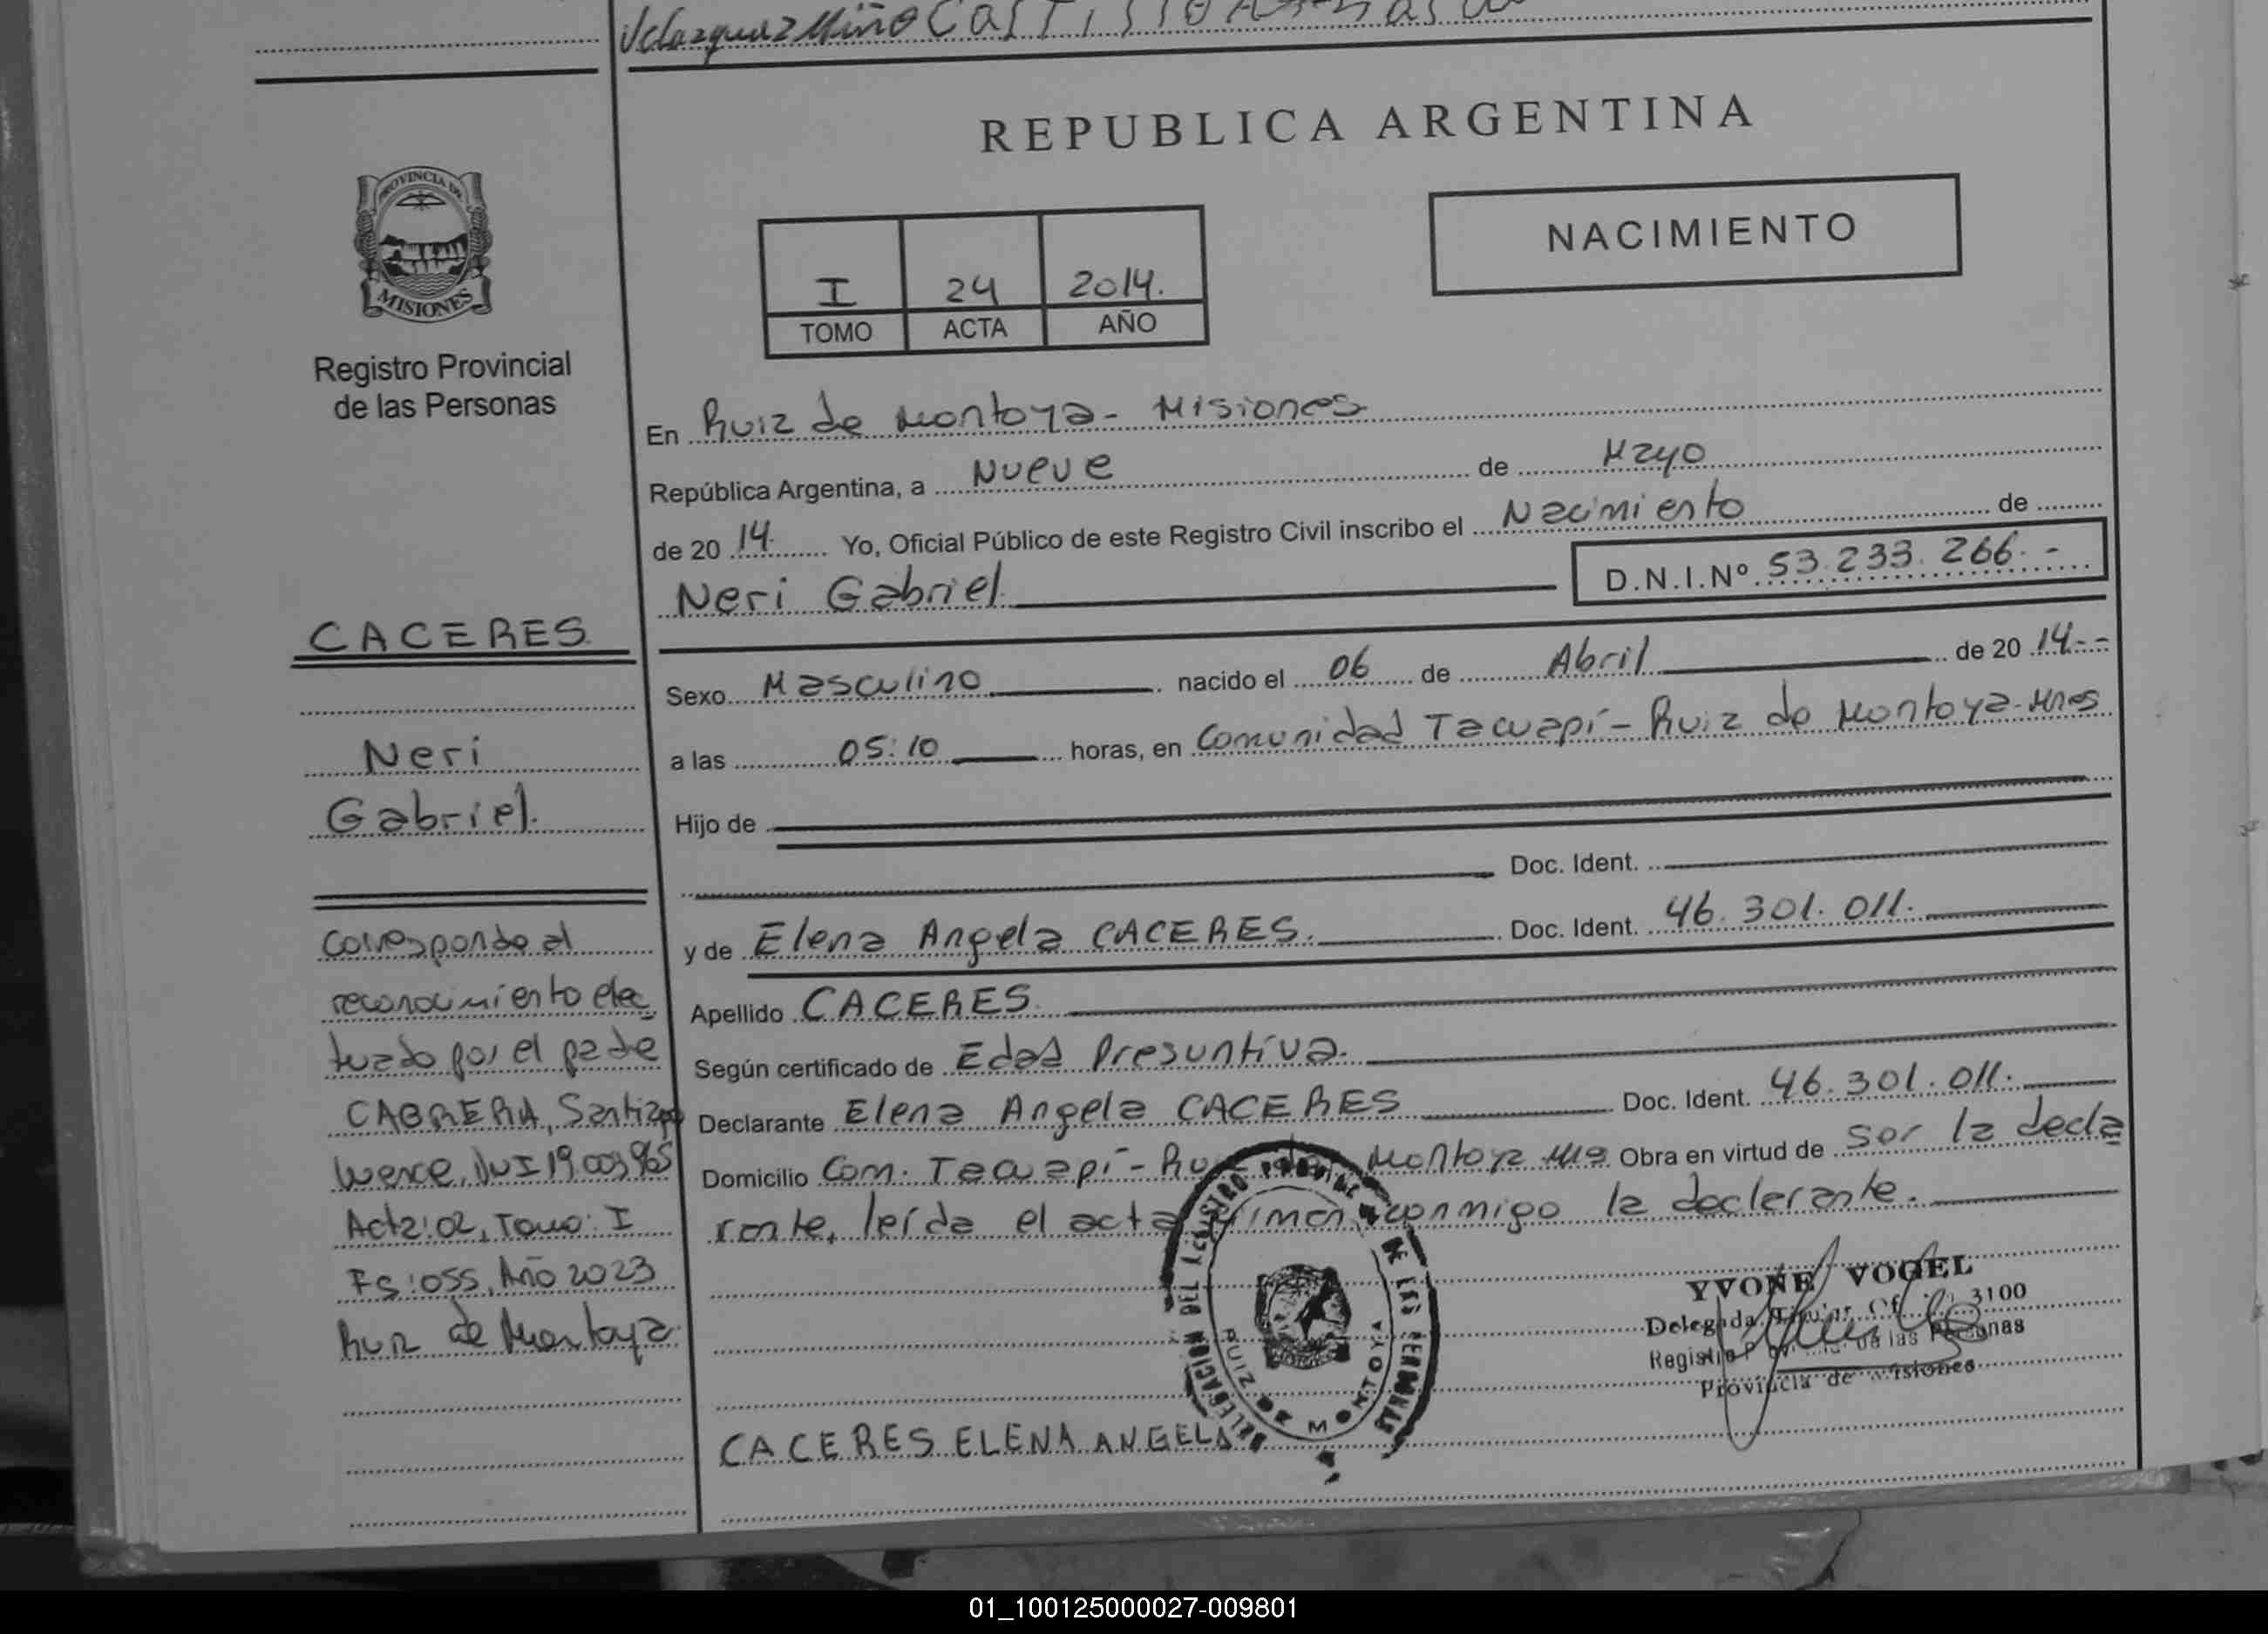 Velazquez Miño
PROVINCIA DE
MISIONES
Registro Provincial
de las Personas
CACERES
Neri
Gabriel.
Corresponde al
reconocimiento efec
tuado por el padre
CABRERA, Santiago
DNI 19.003.965
Acta: 02, Tomo: I
Fs: 055, Año 2023
Ruiz de Montoya.
REPUBLICA ARGENTINA
NACIMIENTO
I 24 2014.
TOMO ACTA AÑO
En Ruiz de Montoya - Misiones
República Argentina, a Nueve de Mayo
de 20 14. Yo, Oficial Público de este Registro Civil inscribo el Nacimiento de
Neri Gabriel D.N.I.Nº 53.233.266.-
Sexo Masculino nacido el 06 de Abril de 20 14.--
a las 05:10 horas, en Comunidad Tacuapí - Ruiz de Montoya - Mnes
Hijo de
Doc. Ident.
y de Elena Angela CACERES. Doc. Ident. 46.301.011.
Apellido CACERES
Según certificado de Edad Presuntiva.
Declarante Elena Angela CACERES Doc. Ident. 46.301.011.
Domicilio Com. Tacuapí - Ruiz de Montoya Obra en virtud de ser la decla
rante, leída el acta firman conmigo la declarante.
DELEGACION DEL REGISTRO PROVINCIAL DE LAS PERSONAS
RUIZ DE MONTOYA
YVONE VOGEL
Delegada Titular Of. 3100
Registro Provincial de las Personas
Provincia de Misiones
CACERES ELENA ANGELA
01_100125000027-009801